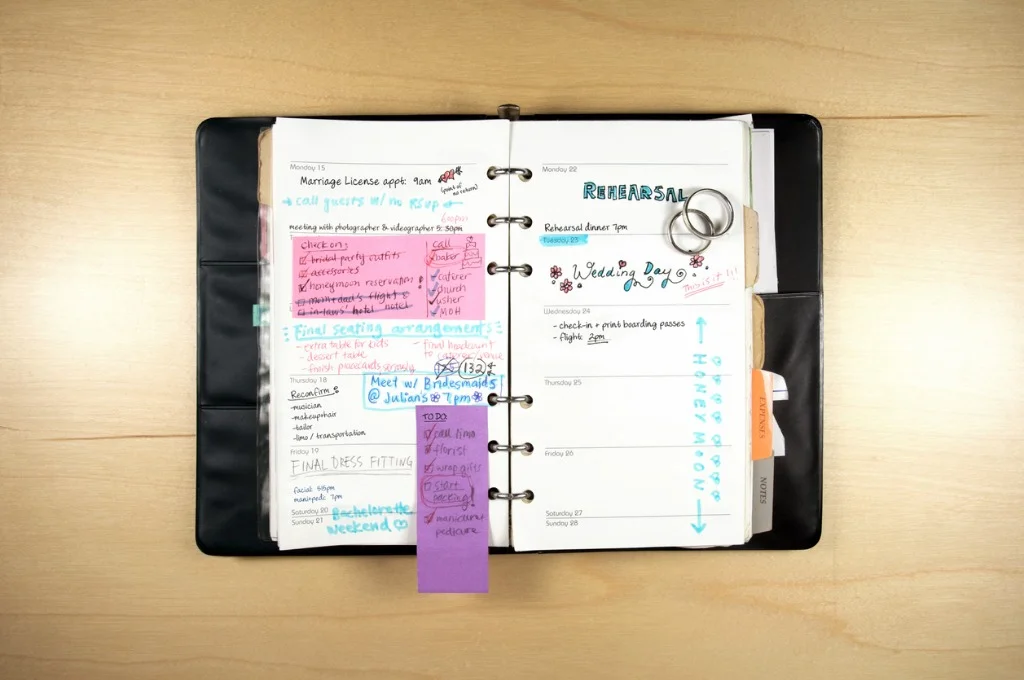 Monday 15
Marriage License appt: 9am
(point of no return?)
call guests w/ no RSVP
6:00pm
meeting with photographer & videographer 5:30pm
check on:
bridal party outfits
accessories
honeymoon reservation!
mom+dad's flight &
in-laws' hotel
call
baker
caterer
church
usher
MOH
Final seating arrangements
- extra table for kids
- dessert table
- finish placecards
- final headcount
to caterer/venue
125 132
Thursday 18
Reconfirm
-musician
-makeup+hair
-tailor
-limo / transportation
Meet w/ Bridesmaids
@ Julian's 7pm
Friday 19
FINAL DRESS FITTING
facial:
mani+pedi: 7pm
Saturday 20
Sunday 21
Bachelorette
weekend
TO DO:
call limo
florist
wrap gifts
start
packing!
manicure+
pedicure
Monday 22
REHEARSAL
Rehearsal dinner 7pm
Tuesday 23
Wedding Day
This is it!!!
Wednesday 24
- check-in + print boarding passes
- flight: 2pm
Thursday 25
Friday 26
Saturday 27
Sunday 28
HONEYMOON
EXPENSES
NOTES